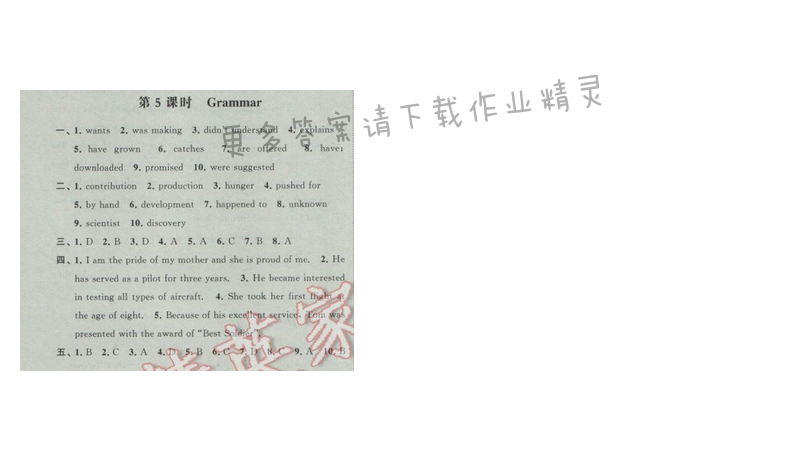 第 5 课时 Grammar
一、1. wants 2. was making 3. didn't understand 4. explains
5. have grown 6. catches 7. are offered 8. have;
downloaded 9. promised 10. were suggested
二、1. contribution 2. production 3. hunger 4. pushed for
5. by hand 6. development 7. happened to 8. unknown
9. scientist 10. discovery
三、1. D 2. B 3. D 4. A 5. A 6. C 7. B 8. A
四、1. I am the pride of my mother and she is proud of me. 2. He
has served as a pilot for three years. 3. He became interested
in testing all types of aircraft. 4. She took her first flight at
the age of eight. 5. Because of his excellent service, Tom was
presented with the award of "Best Soldier".
五、1. B 2. C 3. A 4. D 5. B 6. C 7. D 8. C 9. A 10. B
更多答案请下载作业精灵